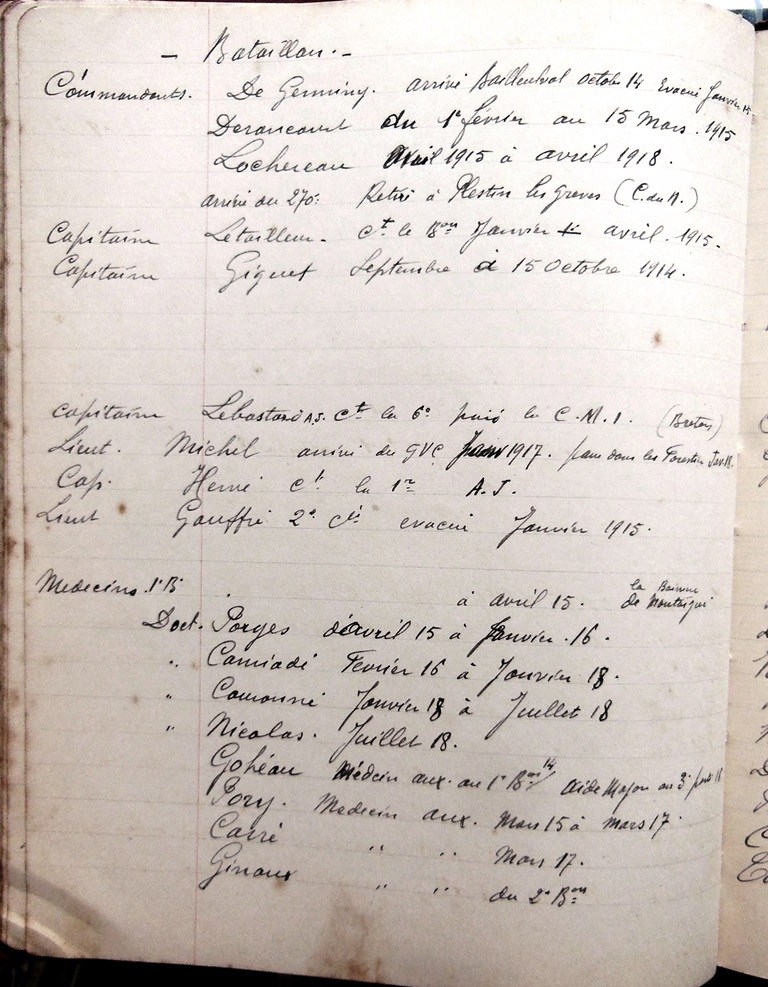 - Bataillon. -
Commandants. De Germiny. arrivé Bailleulval octobre 14 Evacué Janvier 15
Derancourt du 1er février au 15 Mars. 1915
Lochereau Avril 1915 à avril 1918.
arrivé du 270e Retiré à Plestin les Greves (C. du N.)
Capitaine Letailleur. Ct le Bon Janvier avril. 1915.
Capitaine Giguet Septembre à 15 Octobre 1914.
Capitaine Lebastard A.S. Ct la 6e puis la C.M.1. (Breton)
Lieut. Michel arrivé des GVC Janv 1917. passé dans les Forestiers Jan 18.
Cap. Hervé Ct la 1re A.S.
Lieut Gouffré 2e Cie evacué Janvier 1915.
Medecins. 1er B. à avril 15. la Baronne de Montaigu
Doct. Porges d'avril 15 à Janvier. 16.
" Camiadé Fevrier 16 à Janvier 18.
" Camonné Janvier 18 à Juillet 18
" Nicolas. Juillet 18.
Gohéau Médecin aux. au 1er Bon 14 aide Major au 3e
Pory. Medecin aux. Mars 15 à Mars 17.
Carré " " Mars 17.
Giraux " " du 2e Bon